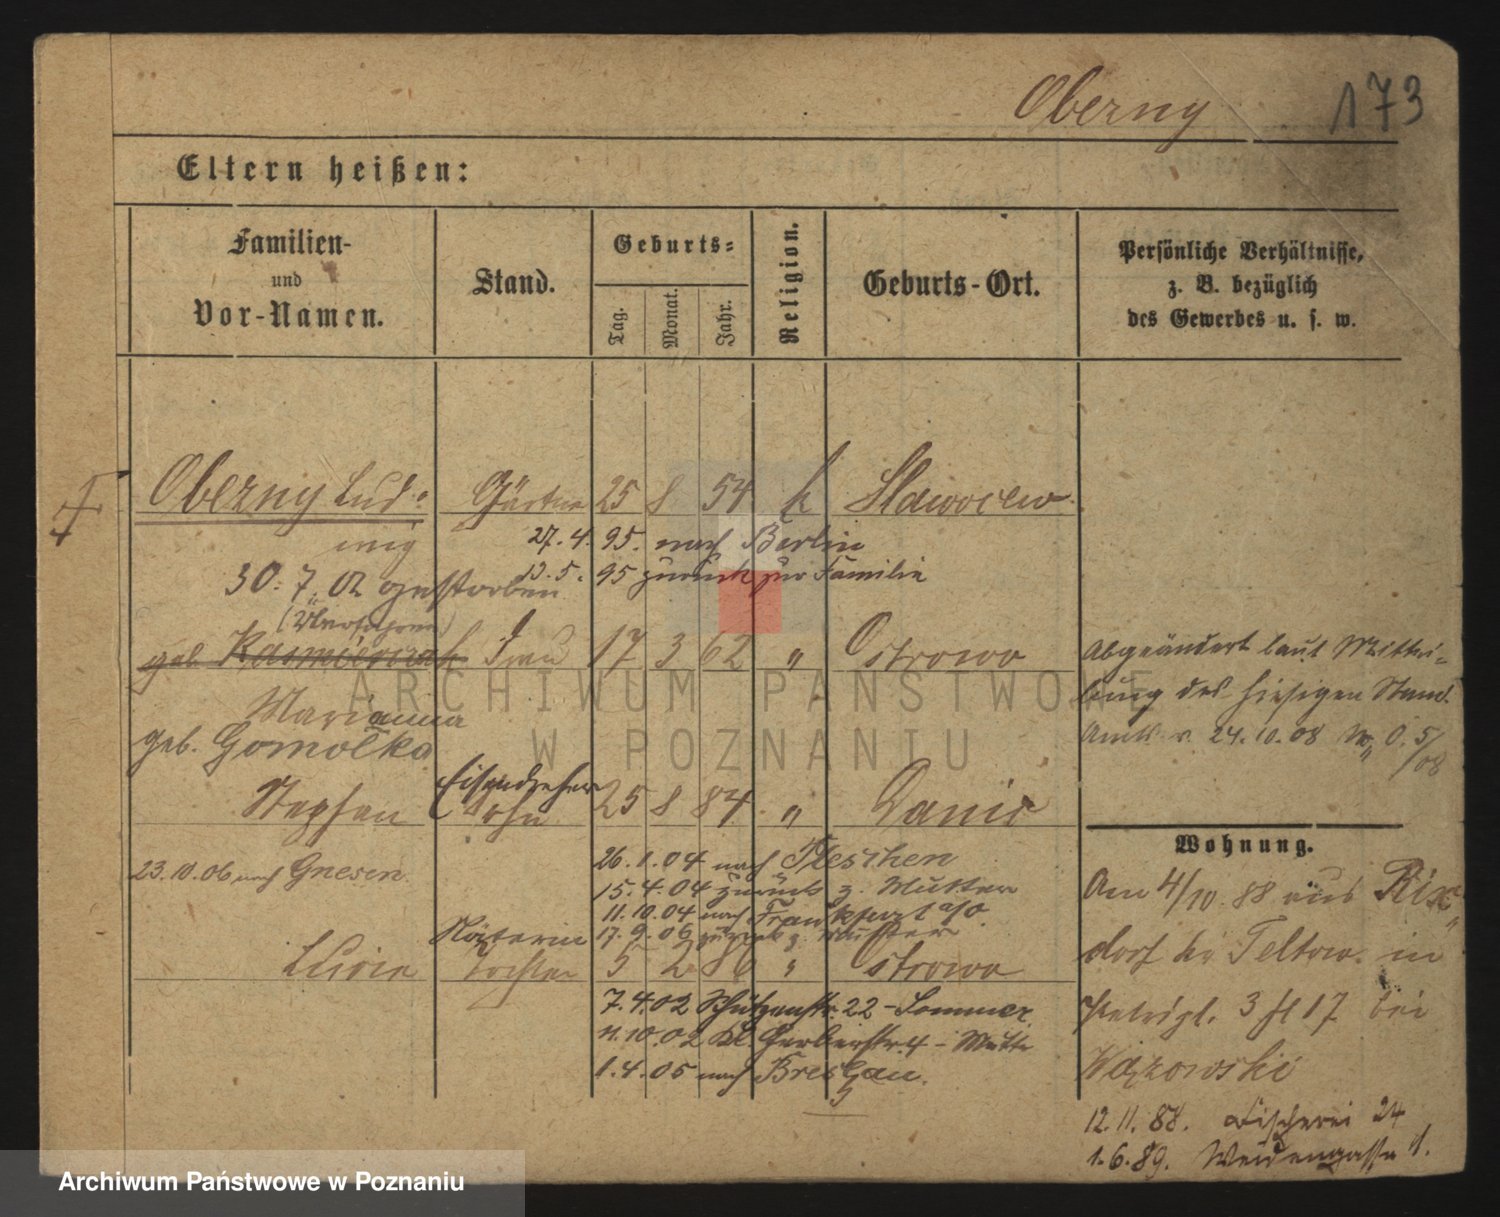 Oberny 173
Eltern heißen:
Familien-
und
Vor-Namen.
Stand.
Geburts-
Tag.
Monat.
Jahr.
Religion.
Geburts-Ort.
Persönliche Verhältnisse,
z. B. bezüglich
des Gewerbes u. s. w.
Oberny Lud- Gärtner 25 8 54 k
wig 27.4. 95. nach Berlin
13.5. 95 zurück zur Familie
30. 7. 02 gestorben
geb. Frau 17 3 62 " Ostrowo
Marianna
geb. Gomolka
Abgeändert laut Mittei-
lung des hiesigen Stand.
Amts v. 24.10.08 No. 5/08
Stephan Eisendreher Sohn 25 8 84 " Danie
23.10.06 nach Gnesen
26.1.04 nach Pleschen
15.4.04 zurück z. Mutter
11.10.04 nach Frankfurt a/O.
17.9.06 zurück z. Mutter
Lucia Näterin Tochter 5 2 86 " Ostrowo
7.4.02 Schützenstr. 22 - Sommer
11.10.02 Kl. Gerberstr. 4 - Mutter
1.4.05 nach Breslau.
Wohnung.
Am 4/10.88 aus Rix-
dorf kr. Teltow. in
Petripl. 3 bei
12.11.88. Fischerei 24
1.6.89. Weidengasse 1.
ARCHIWUM PAŃSTWOWE
W POZNANIU
Archiwum Państwowe w Poznaniu